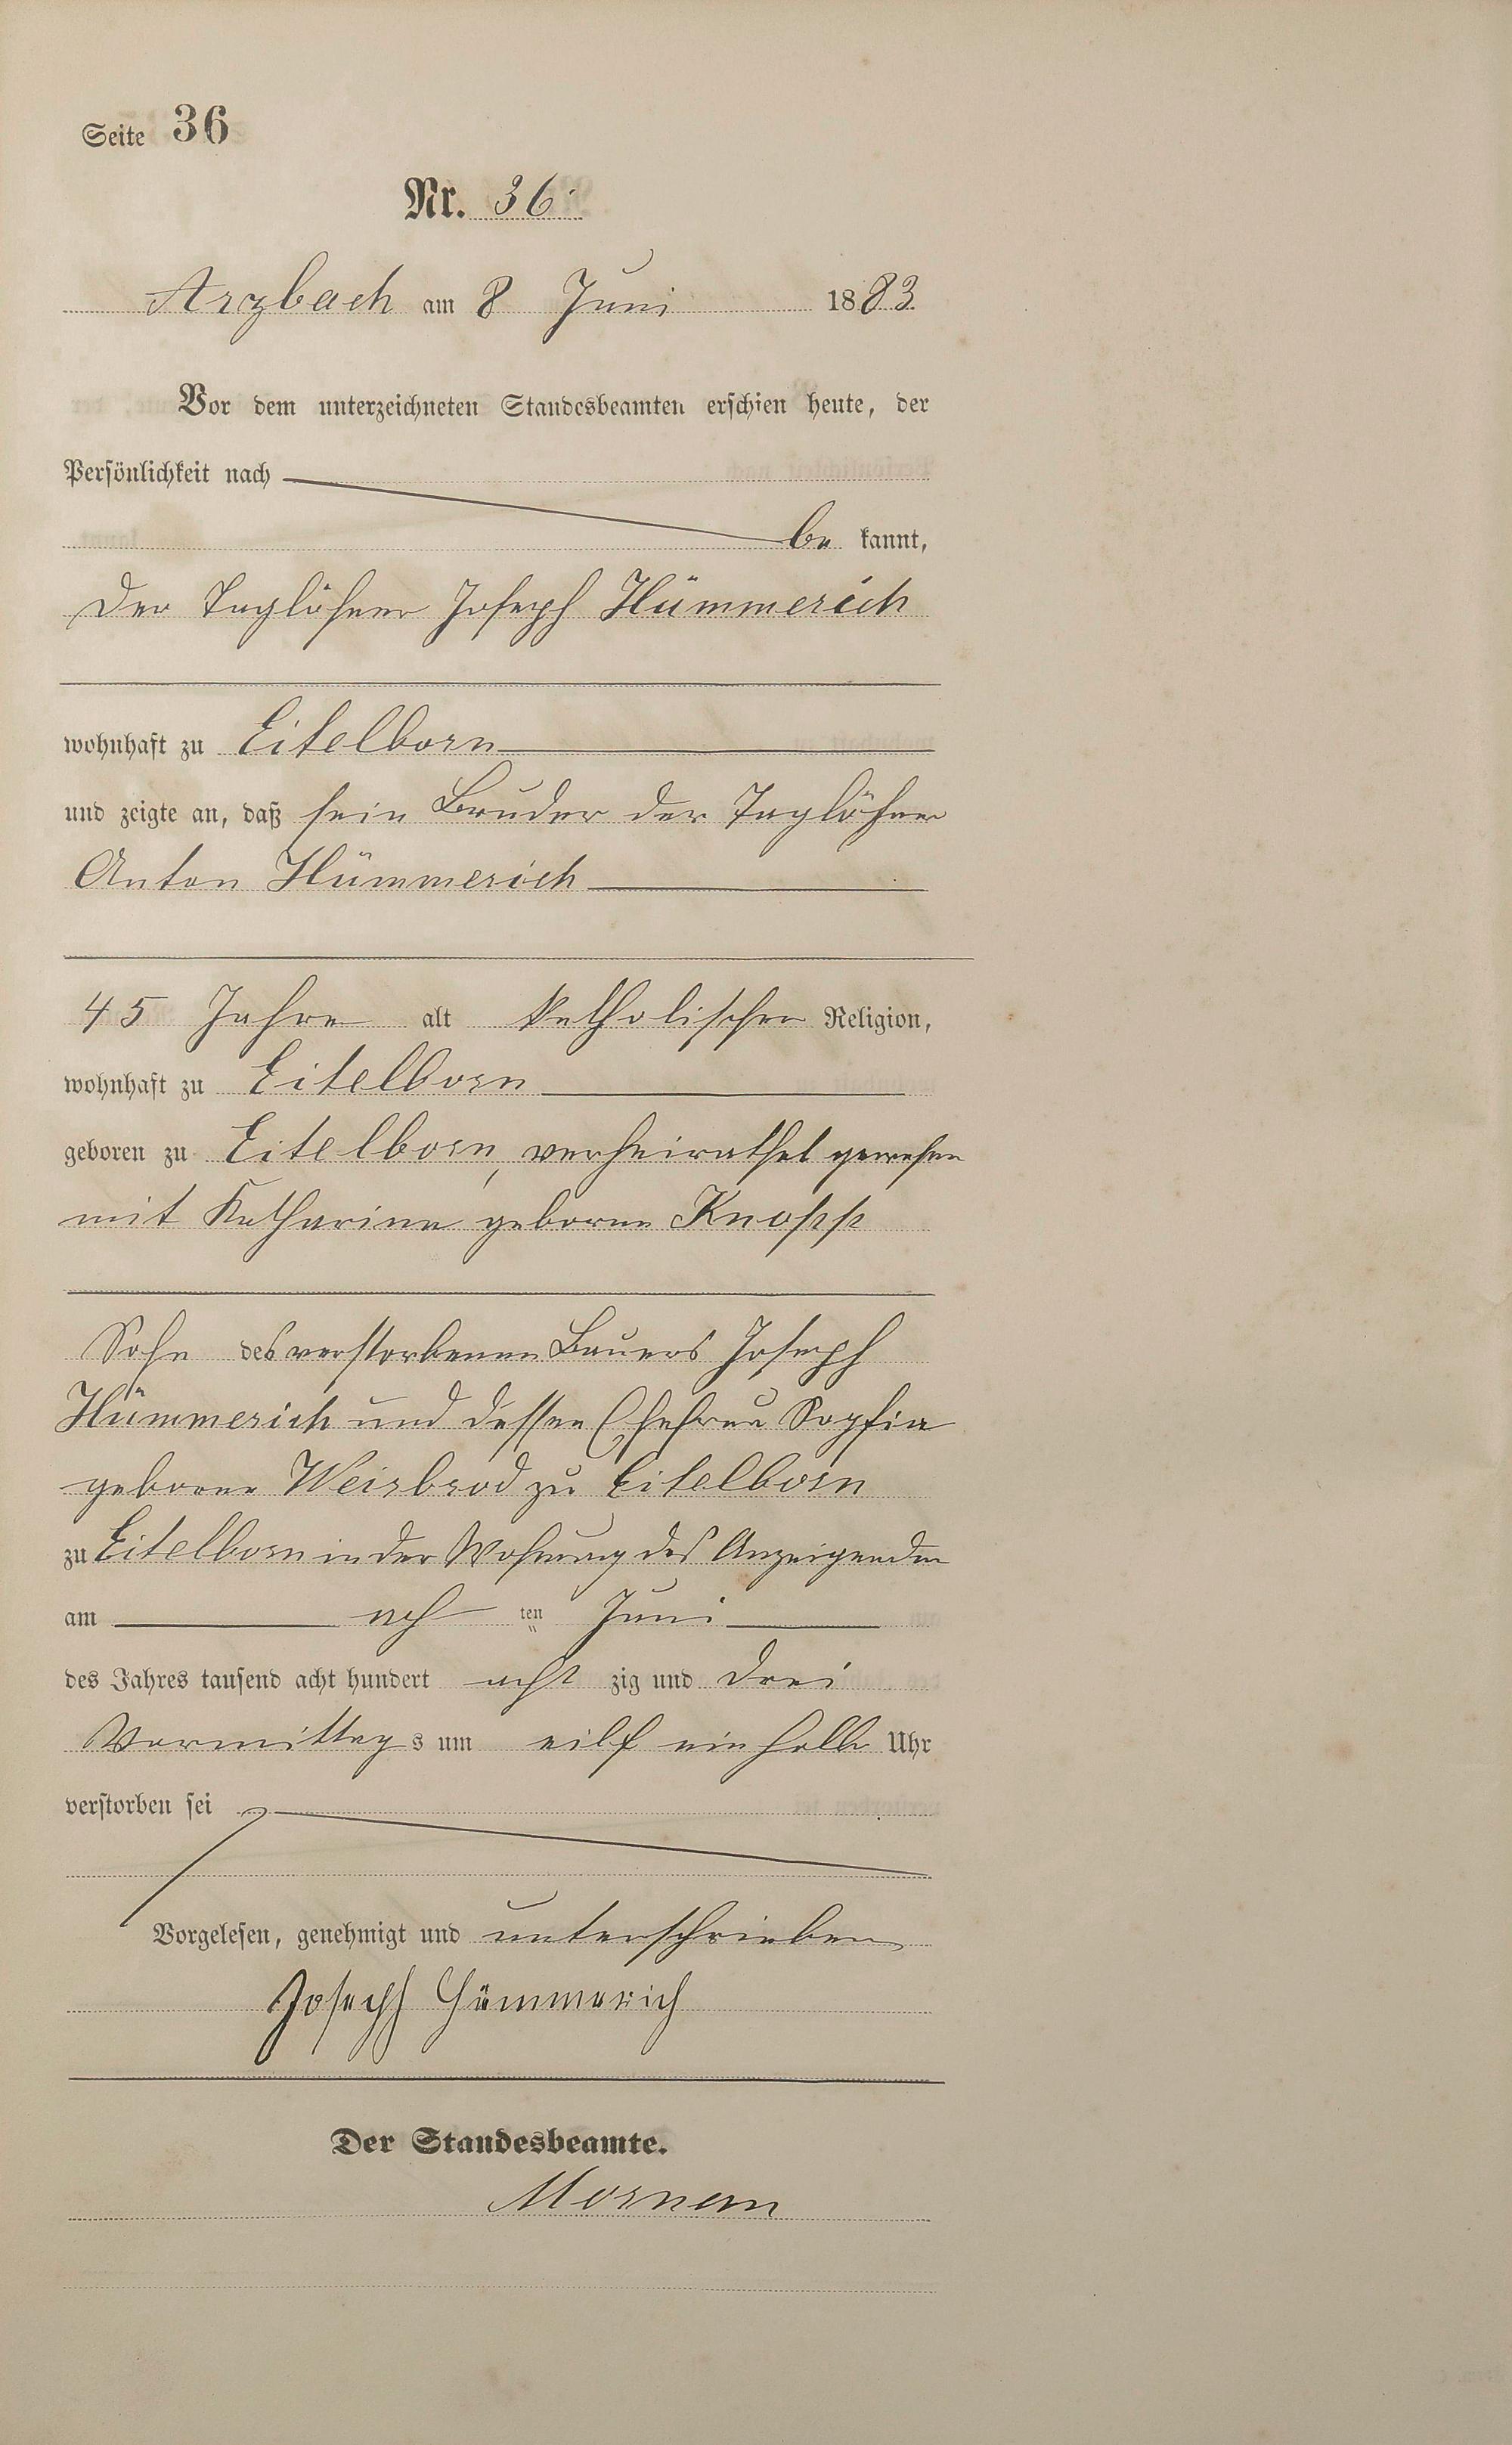 Seite 36
Nr. 36.
Arzbach am 8 Juni 1883
Vor dem unterzeichneten Standesbeamten erschien heute, der
Persönlichkeit nach
be kannt,
der Taglöhner Joseph Hümmerich
wohnhaft zu Eitelborn
und zeigte an, daß sein Bruder der Taglöhner
Anton Hümmerich
45 Jahre alt katholischer Religion,
wohnhaft zu Eitelborn
geboren zu Eitelborn, verheirathet gewesen
mit Katharina geborene Knopp
Sohn des verstorbenen Bauers Joseph
Hümmerich und dessen Ehefrau Sophia
geborene Weisbrod zu Eitelborn
zu Eitelborn in der Wohnung des Anzeigenden
am ach ten Juni
des Jahres tausend acht hundert acht zig und drei
Vormittags um eilf ein halb Uhr
verstorben sei
Vorgelesen, genehmigt und unterschrieben
Joseph Hümmerich
Der Standesbeamte.